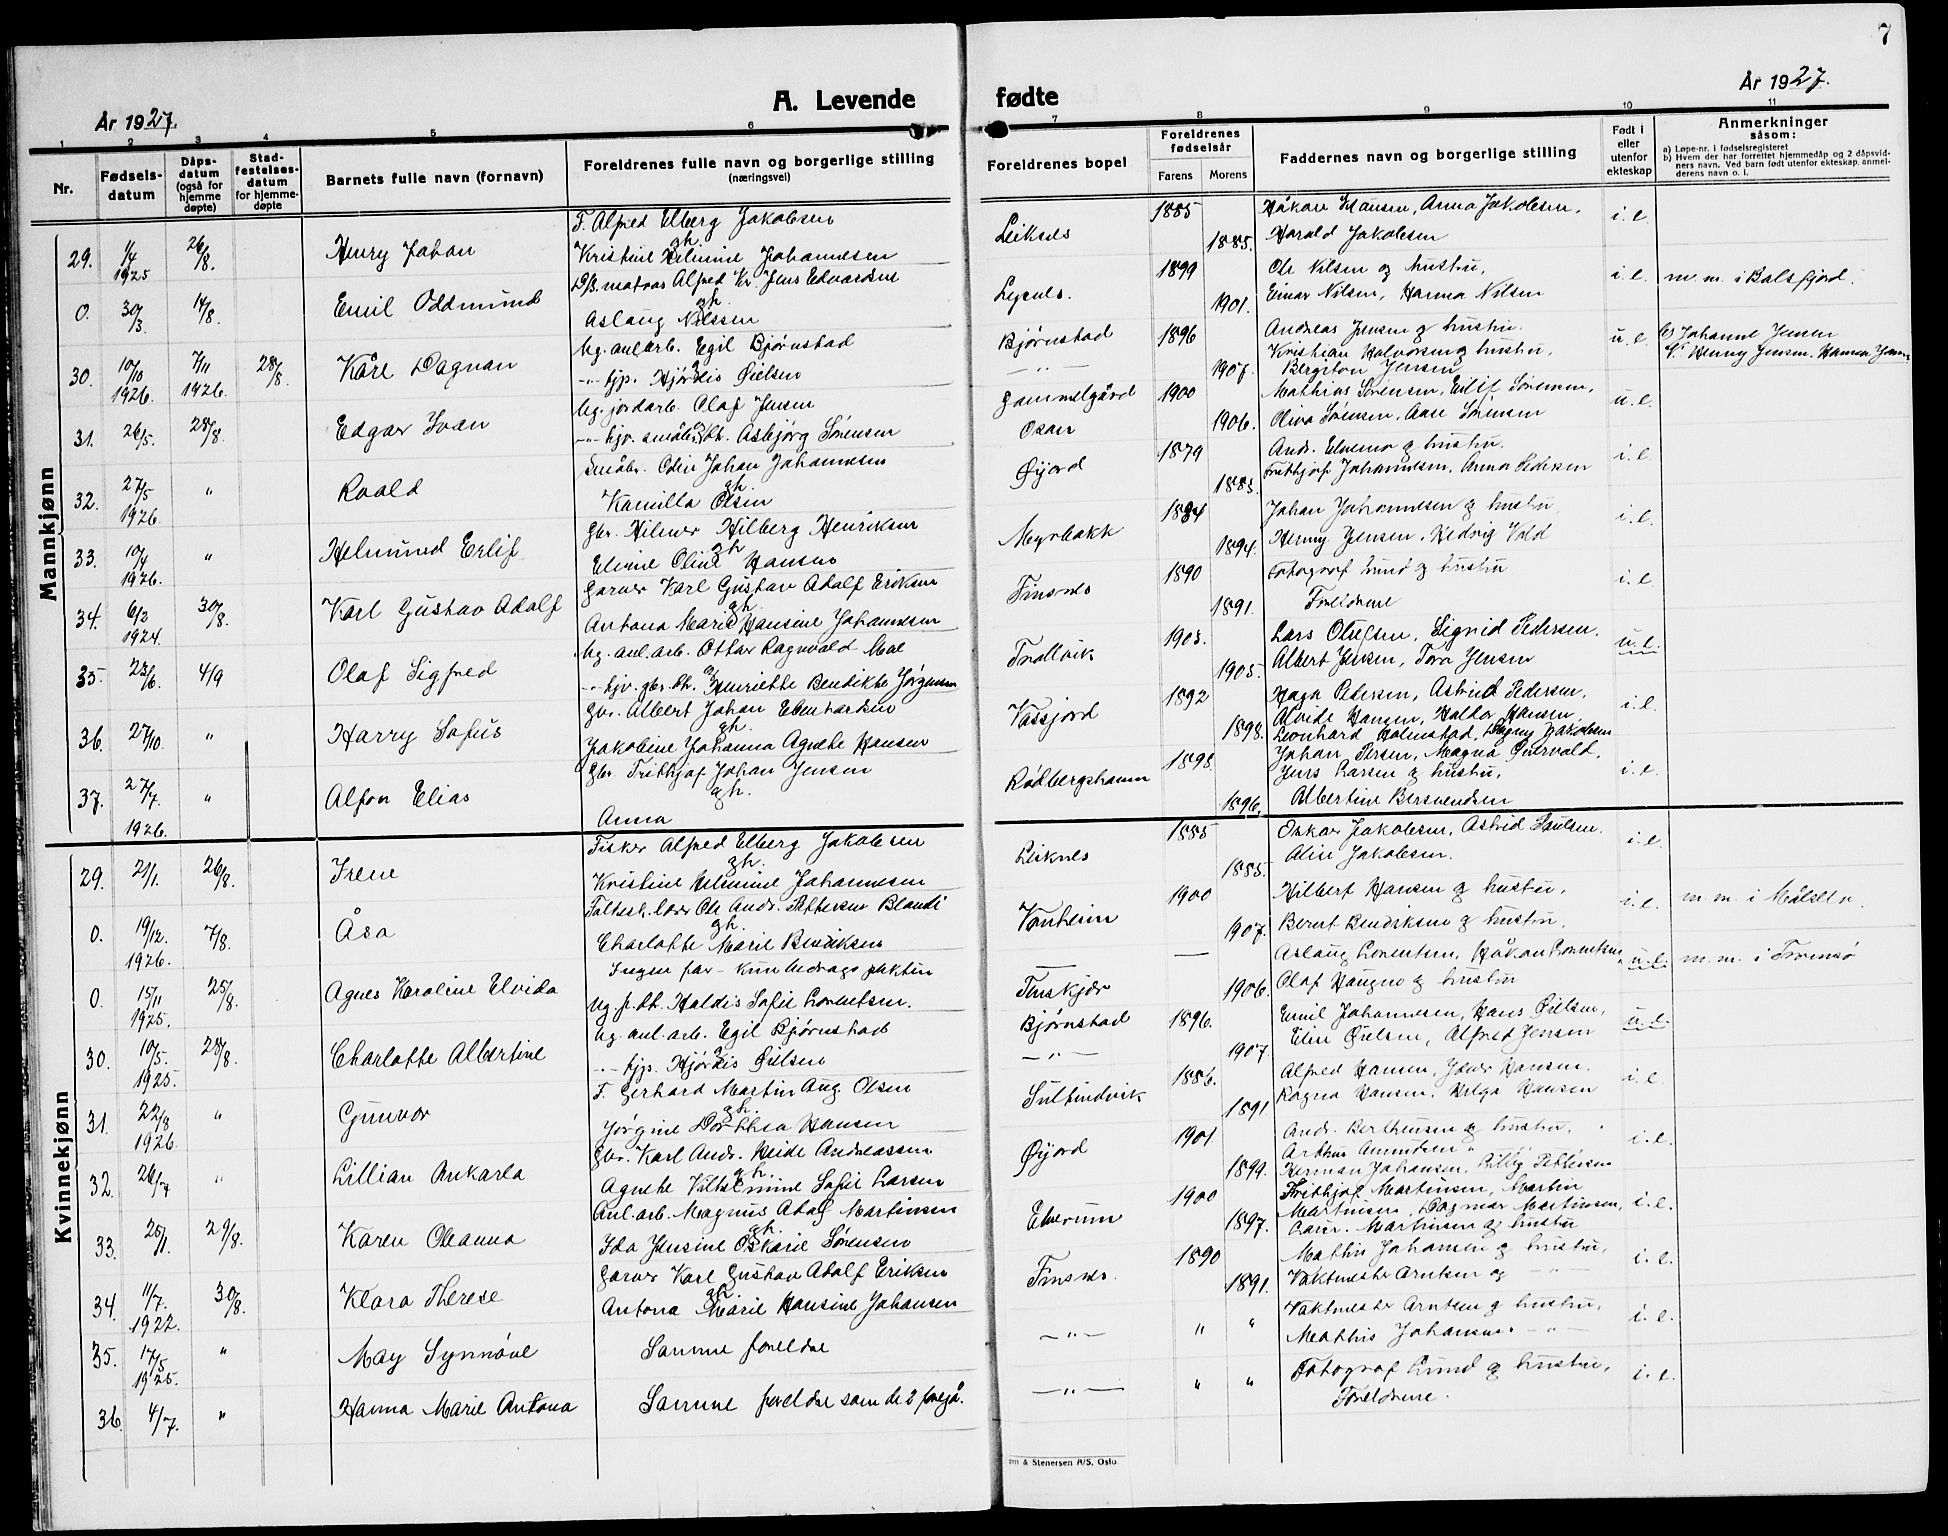 7
År 1927.
A. Levende
fødte
År 1927.
1 2 3 4 5 6
7 8 9 10 11
Nr.
Fødsels-
datum
Dåps-
datum
(også for
hjemme
døpte)
Stad-
festelses-
datum
for hjemme-
døpte
Barnets fulle navn (fornavn)
Foreldrenes fulle navn og borgerlige stilling
(næringsvei)
Foreldrenes bopel
Foreldrenes
fødselsår
Farens Morens
Faddernes navn og borgerlige stilling
Født i
eller
utenfor
ekteskap
Anmerkninger
såsom:
a) Løpe-nr. i fødselsregisteret
b) Hvem der har forrettet hjemmedåp og 2 dåpsvid-
ners navn. Ved barn født utenfor ekteskap, anmel-
derens navn o. l.
Mannkjønn
29. 1/4 1925 26/8. Henry Johan
F. Alfred Elberg Jakobsen
gh.
Kristine Helmine Johannesen
1885 1885.
Håkon Hansen, Anna Jakobsen.
Harald Jakobsen
i. e.
0. 30/3. 14/8. Emil Oddmund
matros Alfred Kr. Jens Edvardsen
gh.
Aslaug Nilssen
Legnes. 1899 1901.
Ole Nilsen og hustru,
Einar Nilsen, Hanna Nilsen
i. e. m. m. i Balsfjord.
30. 10/10 1926. 7/11 1926. 28/8. Kåre Dagnan
Ug. anl.arb. Egil Bjørnstad
-"- tjp. Hjørdis Øielsen
Bjørnstad
-"-
1896 1907.
Andreas Jensen og hustru.
Kristian Halvorsen og hustru,
Bergiton Jensen
u. e. b) Johanne Jensen
Henny Jensen, Hanna Jensen
31. 26/5. 28/8. Edgar Ivan
Ug. jordarb. Olaf Jensen
-"- hjv. småbr. dt. Asbjørg Sørensen
Gammelgård
Osan
1900 1906.
Mathias Sørensen, Eilif Sørensen,
Oliva Sørensen, Aase Sørensen
u. e.
32. 27/5 1926. " Roald
Småbr. Odin Johan Johannesen
gh.
Kamilla Olsen
Øijord 1879 1883.
And. Elvemo og hustru.
Frithjof Johannesen, Anna Pedersen
i. e.
33. 10/4 1926. " Helmund Erlif
Gbr. Hilmer Hilberg Henriksen
gh
Elime Oline Hansen
Myrbakk 1884 1894.
Johan Johannesen og hustru,
Henny Jensen, Hedvig Vold
i. e.
34. 6/2 1924. 30/8. Karl Gustav Adolf
Garver Karl Gustav Adolf Eriksen
gh.
Antona Marie Hansine Johannesen
Finsnes 1890 1891.
Fotograf Lund og hustru
Foreldrene
i. e.
35. 23/6. 4/9 Olaf Sigfred
Ug. anl.arb. Ottar Ragnvald Moe
-"- hjv. gbr. dt. Henriette Bendikte Jørgensen
Trollvik 1903. 1905.
Lars Olufsen, Sigrid Pedersen.
Albert Jensen, Tora Jensen
u. e.
36. 27/10. " Harry Sofus
Gbr. Albert Johan Edvardsen
gh.
Jakobine Johanna Agnethe Hansen
Vassjord 1892 1898.
Haga Pedersen, Astrid Pedersen.
Alvide Hansen, Haldor Hansen
Leonhard Holmstad, Dagny Jakobsen
i. e.
37. 27/7. 1926. " Alfon Elias
Gbr. Frithjof Johan Jensen
gh.
Anna
Rødbergshamn 1898. 1896.
Johan Persen, Magna Overvold.
Jens Larsen og hustru,
Albertine Bersvendsen
i. e.
Kvinnekjønn
29. 21/1. 26/8. Irene
Fisker Alfred Elberg Jakobsen
gh.
Kristine Helmine Johannesen
Leiknes 1885 1885.
Oskar Jakobsen, Astrid Paulsen.
Alise Jakobsen.
i. e.
0. 19/12. 1926. 7/8. Åsa
lærer Ole Andr. Pettersen Blandi
gh.
Charlotte Marie Bendiksen
Vonheim 1900 1907.
Hilbert Hansen og hustru,
Bernt Bendiksen og hustru,
i. e. m. m. i Målselv.
0. 15/11 1925. 25/8. Agnes Karoline Elvida
Ingen far - kun bidragspliktig
Ug. f. dt. Haldis Sofie Lorentsen.
Finskjær — 1906.
Aslaug Lorentsen, Håkon Lorentsen,
Olaf Haugne og hustru
u. e. m. m. i Tromsø
30. 10/5. 1925. 28/8. Charlotte Albertine
Ug. anl. arb. Egil Bjørnstad
-"- tjp. Hjørdis Øielsen
Bjørnstad
-"-
1896. 1907.
Emil Johannesen, Hans Øielsen,
Elise Øielsen, Alfred Jensen
u. e.
31. 22/8 1926. " Gunvor
F. Gerhard Martin Aug Olsen
gh.
Jørgine Dorthea Hansen
Sultindvik 1886. 1891
Alfred Hansen, Idar Hansen.
Ragna Hansen, Helga Hansen
i. e.
32. 26/7 " Lillian Ankarla
Gbr. Karl Andr. Heide Andreassen
gh.
Agnete Vilhelmine Sofie Larsen
Øijord 1901 1899.
And. Berthensen og hustru,
Arthur Amundsen "
Herman Johansen, Pettersen
i. e.
33. 25/1. 29/8. Karen Oleanna
Anl.arb. Magnus Adolf Martinsen
gh.
Ida Jensine Oskarie Sørensen
Elverum 1900 1897.
Frithjof Martinsen, Martin
Martinsen, Dagmar Martinsen,
Martinsen og hustru
i. e.
34. 11/7. 1922. 30/8. Klara Therese
Garver Karl Gustav Adolf Eriksen
gh.
Antona Marie Hansine Johansen
Finsnes. 1890 1891.
Mathis Johansen og hustru,
Vaktmester Arntsen og -"-
i. e.
35. 17/5 1925. " May Synnøve
Samme foreldre
-"- " "
Vaktmester Arntsen og hustru,
Mathis Johansen -"-
i. e.
36. 4/7. " Hanna Marie Antona
Samme foreldre som de 2 foregå.
-"- " "
Fotograf Lund og hustru,
Foreldrene.
i. e.
& Stenersen A/S, Oslo.